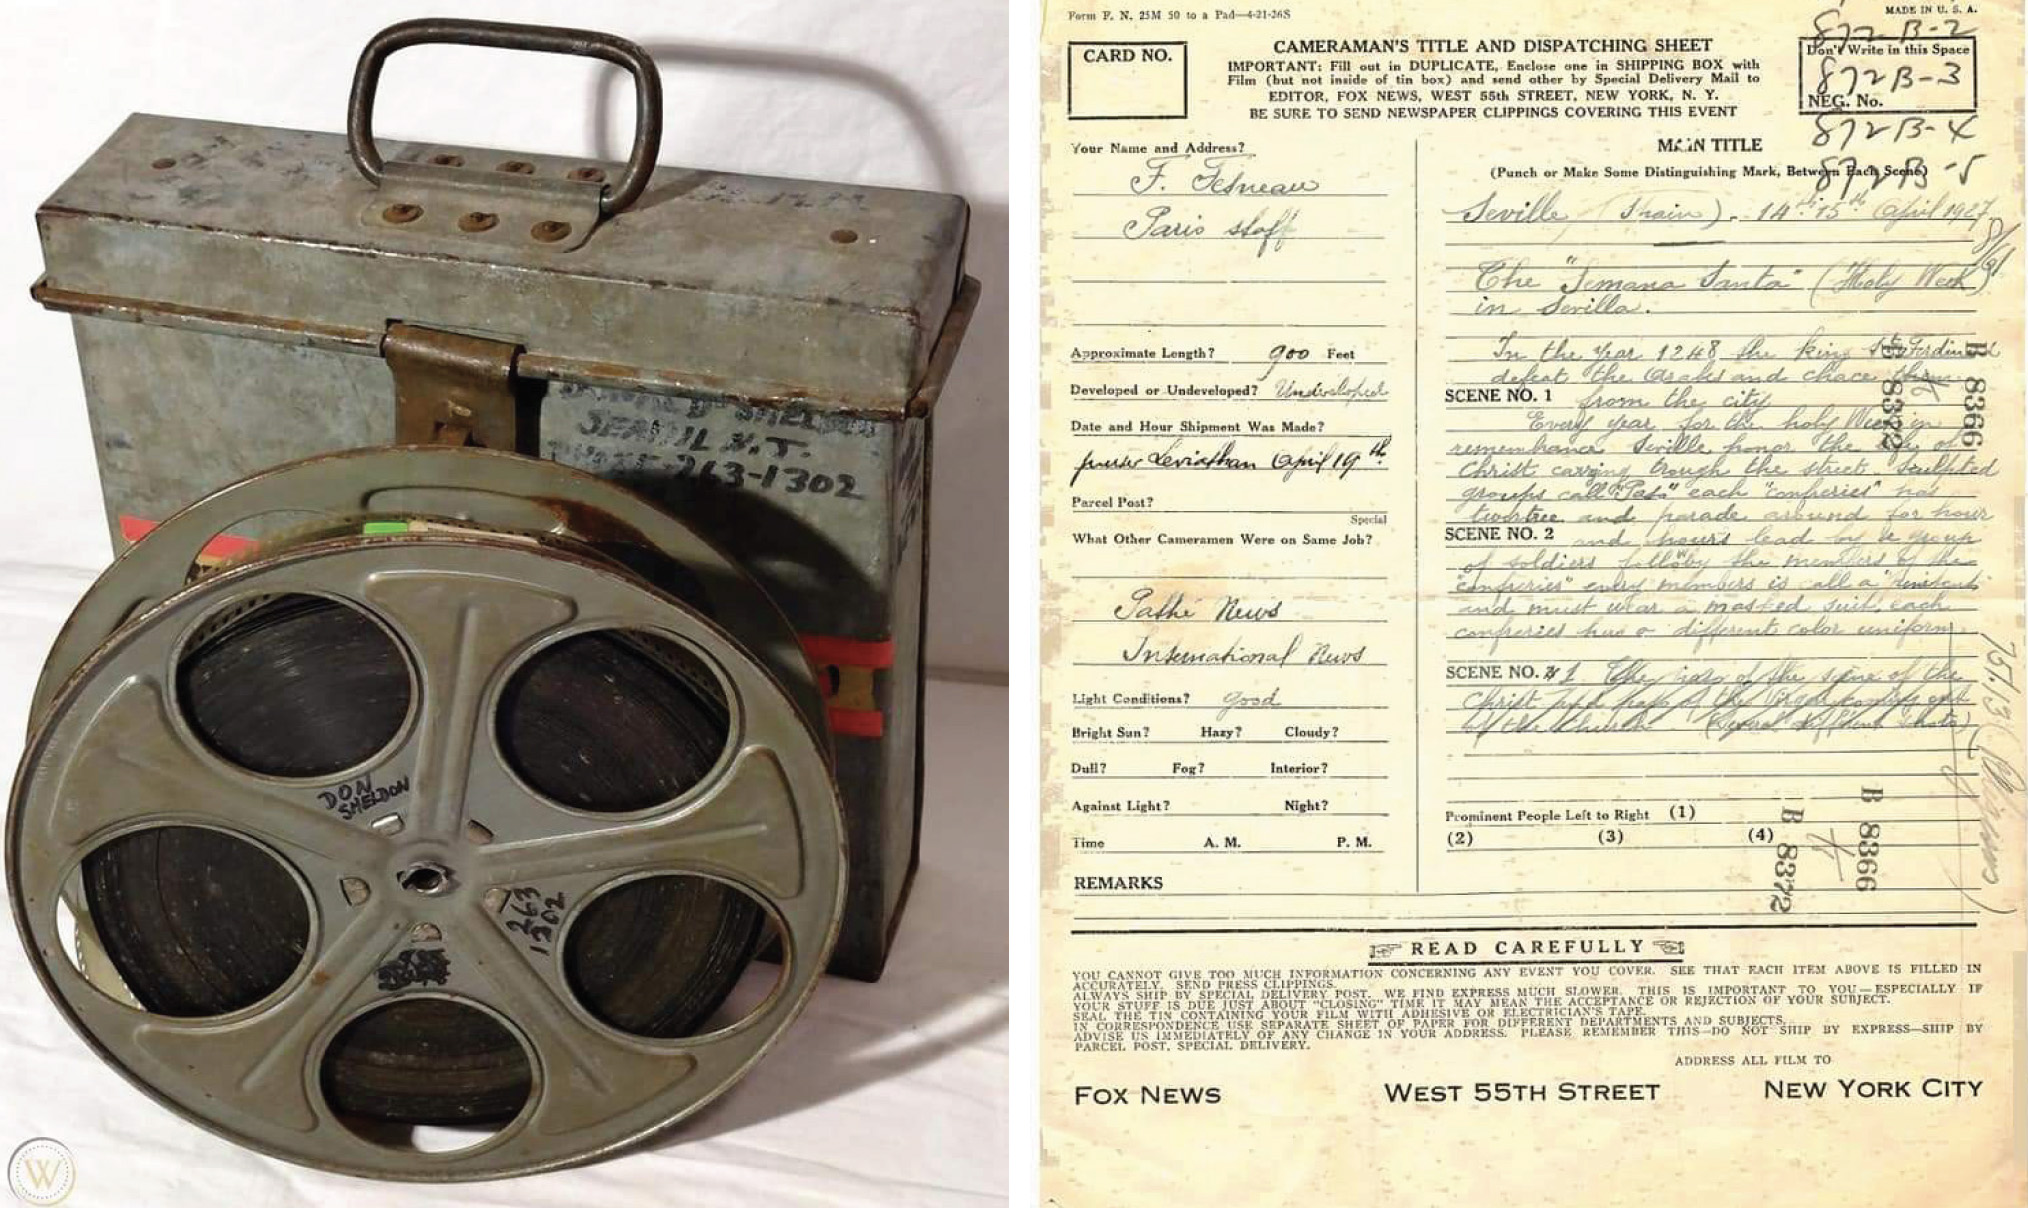 SHELDON
N.J.
263-1302
DON
SHELDON
263
1302
W
Form F. N. 25M 50 to a Pad—4-21-26S
MADE IN U. S. A.
872-B-2
CARD NO.
CAMERAMAN'S TITLE AND DISPATCHING SHEET
IMPORTANT: Fill out in DUPLICATE, Enclose one in SHIPPING BOX with
Film (but not inside of tin box) and send other by Special Delivery Mail to
EDITOR, FOX NEWS, WEST 55th STREET, NEW YORK, N. Y.
BE SURE TO SEND NEWSPAPER CLIPPINGS COVERING THIS EVENT
Don't Write in this Space
872B-3
NEG. No.
872B-4
872B-5
Your Name and Address?
F. Fesneau
Paris staff
Approximate Length? 900 Feet
Developed or Undeveloped? Undeveloped
Date and Hour Shipment Was Made?
Leviathan April 19th
Parcel Post?
Special
What Other Cameramen Were on Same Job?
Pathé News
International News
Light Conditions? good
Bright Sun? Hazy? Cloudy?
Dull? Fog? Interior?
Against Light? Night?
Time A. M. P. M.
REMARKS
MAIN TITLE
(Punch or Make Some Distinguishing Mark, Between Each Scene)
Seville (Spain). 14th 15th April 1927
The "Semana Santa" (Holy Week)
in Sevilla.
In the year 1248 the king St Ferdinand
defeat the Arabs and chace them
SCENE NO. 1 from the city
Every year for the holy Week in
remembrance Seville honor the of
Christ carying trough the street sculpted
groups call "Paso" each "confreries" has
two tree and parade around for hour
SCENE NO. 2 and hours lead by a group
of soldiers follow by the members of the
"confreries" every members is call a "penitent"
and must wear a masked suit, each
confreries has a different color uniform
SCENE NO. 1 The paso of the scene of the
Christ and paso of the Virgen coming out
of the Church (Several different shots)
B 8366
8372
Prominent People Left to Right (1)
(2) (3) (4)
B 8366
B 8372
READ CAREFULLY
YOU CANNOT GIVE TOO MUCH INFORMATION CONCERNING ANY EVENT YOU COVER. SEE THAT EACH ITEM ABOVE IS FILLED IN
ACCURATELY. SEND PRESS CLIPPINGS.
ALWAYS SHIP BY SPECIAL DELIVERY POST. WE FIND EXPRESS MUCH SLOWER. THIS IS IMPORTANT TO YOU—ESPECIALLY IF
YOUR STUFF IS DUE JUST ABOUT "CLOSING" TIME IT MAY MEAN THE ACCEPTANCE OR REJECTION OF YOUR SUBJECT.
SEAL THE TIN CONTAINING YOUR FILM WITH ADHESIVE OR ELECTRICIAN'S TAPE.
IN CORRESPONDENCE USE SEPARATE SHEET OF PAPER FOR DIFFERENT DEPARTMENTS AND SUBJECTS.
ADVISE US IMMEDIATELY OF ANY CHANGE IN YOUR ADDRESS. PLEASE REMEMBER THIS—DO NOT SHIP BY EXPRESS—SHIP BY
PARCEL POST, SPECIAL DELIVERY.
ADDRESS ALL FILM TO
FOX NEWS WEST 55TH STREET NEW YORK CITY